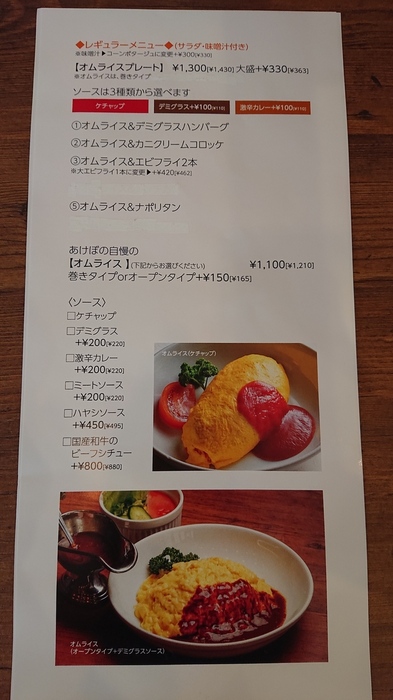 ◆レギュラーメニュー◆(サラダ・味噌汁付き)
※味噌汁▶コーンポタージュに変更+¥300[¥330]
【オムライスプレート】 ¥1,300[¥1,430] 大盛+¥330[¥363]
※オムライスは、巻きタイプ
ソースは3種類から選べます
ケチャップ デミグラス+¥100[¥110] 激辛カレー+¥100[¥110]
①オムライス&デミグラスハンバーグ
②オムライス&カニクリームコロッケ
③オムライス&エビフライ2本
※大エビフライ1本に変更▶+¥420[¥462]
⑤オムライス&ナポリタン
あけぼの自慢の
【オムライス 】(下記からお選びください) ¥1,100[¥1,210]
巻きタイプorオープンタイプ+¥150[¥165]
〈ソース〉
□ケチャップ
□デミグラス
+¥200[¥220]
□激辛カレー
+¥200[¥220]
□ミートソース
+¥200[¥220]
□ハヤシソース
+¥450[¥495]
□国産和牛の
ビーフシチュー
+¥800[¥880]
オムライス(ケチャップ)
オムライス
(オープンタイプ+デミグラスソース)